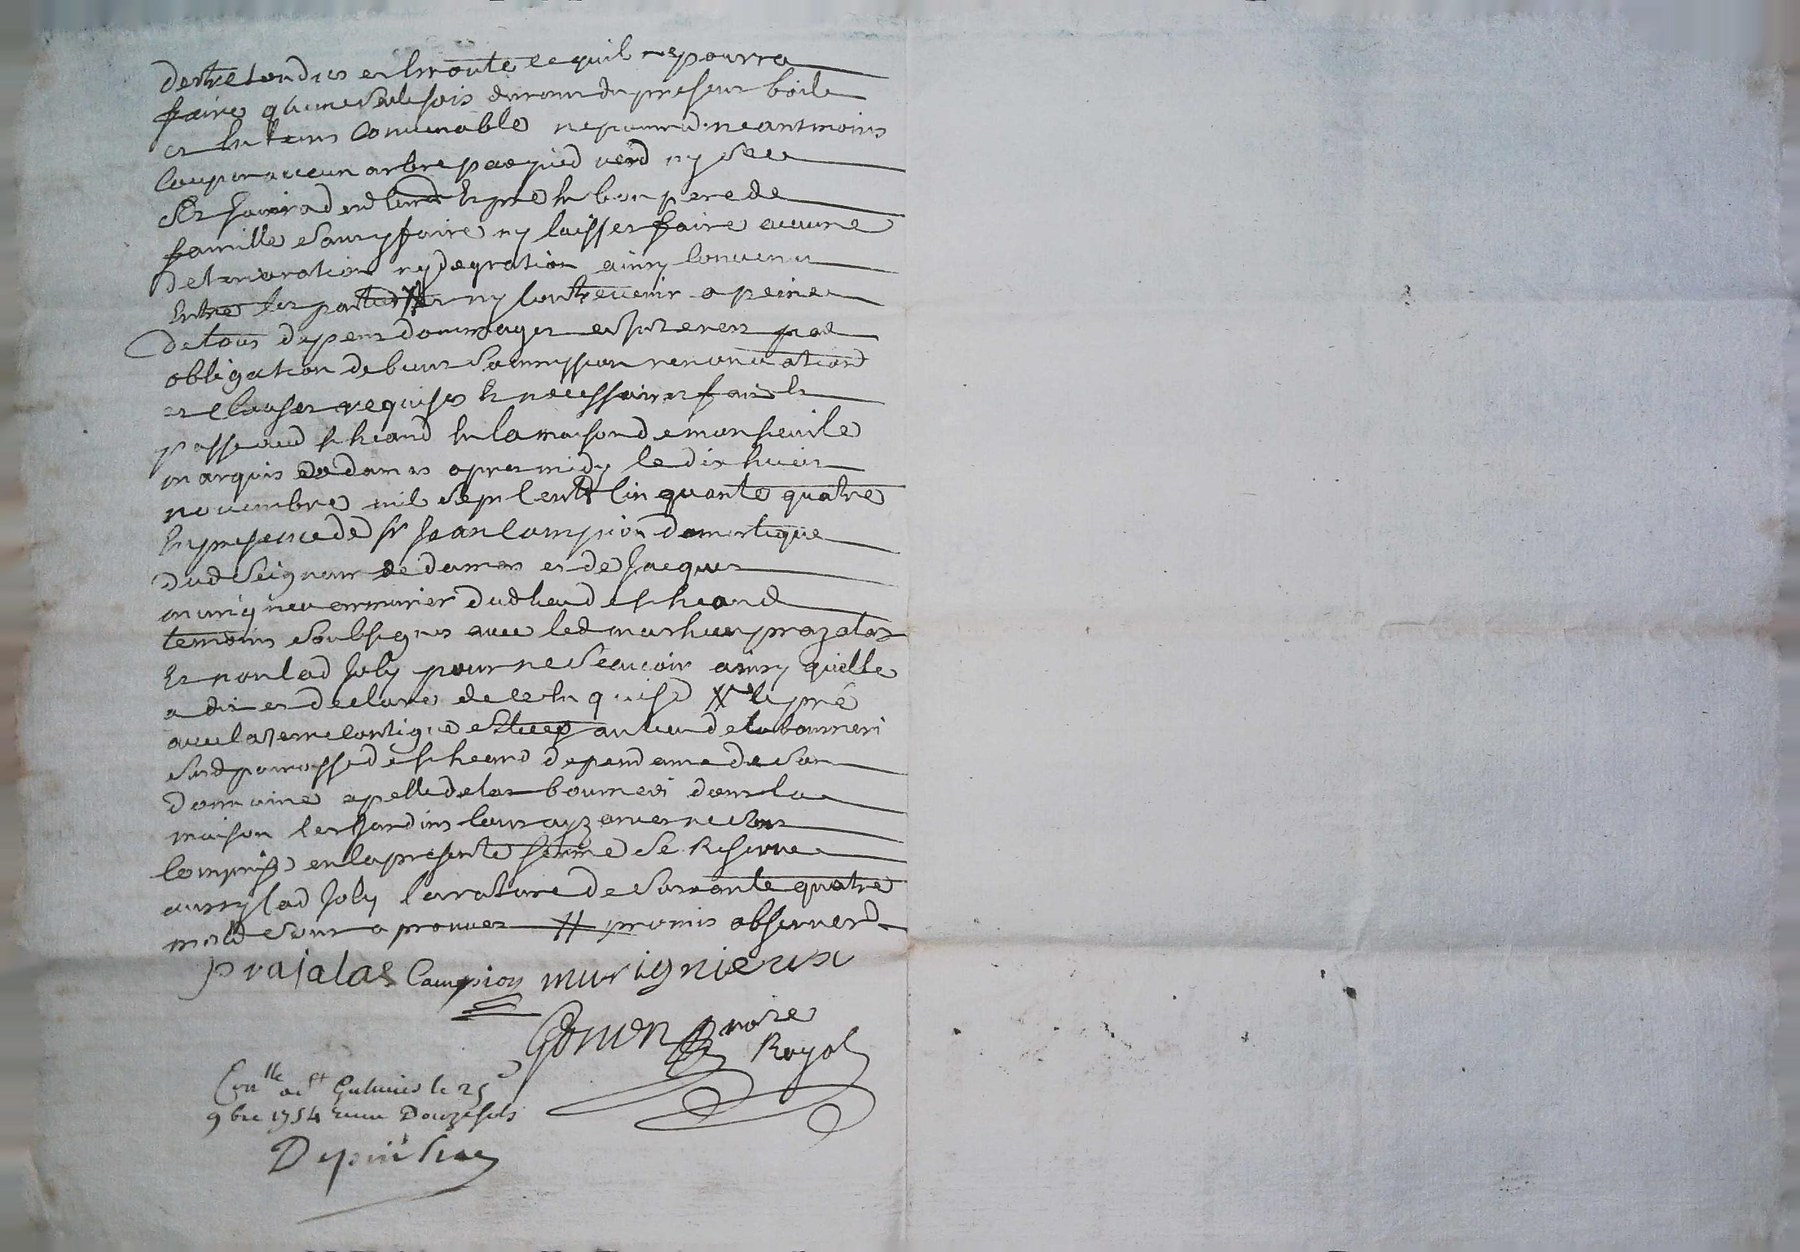 destre tondues et emonte ce quil ne pourra
faire qu'une seule fois durant du present bail
et en tems Convenable ne pourra neantmoins
Couper aucun arbre par pied verd ny sec
Et jouira dud en bon pere de
famille sans y faire ny laisser faire aucune
deterioration ny degration ainsy convenu
Entre les parties # et ny contrevenir a peine
de tous depens dommages et interets par
obligation de biens soumission renonciations
et clauses requises et necessaires fait et
passe aud st heand en la maison de monsieur le
marquis de damas apres midy le dix huit
novembre mil sept cent cinquante quatre
En presence de sr jean campion domestique
dud seigneur de damas et de jacques
murigneu armurier dud lieu de st heand
temoins soubsignes avec led mathieu prajalas
Et non lad joly pour ne scavoir ainsy quelle
a dit et declare de ce enquise # le pré
avec la terre contigue au lieu de la bourneri
sud paroisse de st heand dependant de son
domaine apelle de la bourneri dans la
maison les jardins
compris en la presente ferme se Reserve
aussy lad joly la rature de soixante quatre
mots sont aprouves # promis observer
prajalas Campion murignieux
nore
Royal
Conlle a St Galmier le 25e
9bre 1754 recu Douze sols